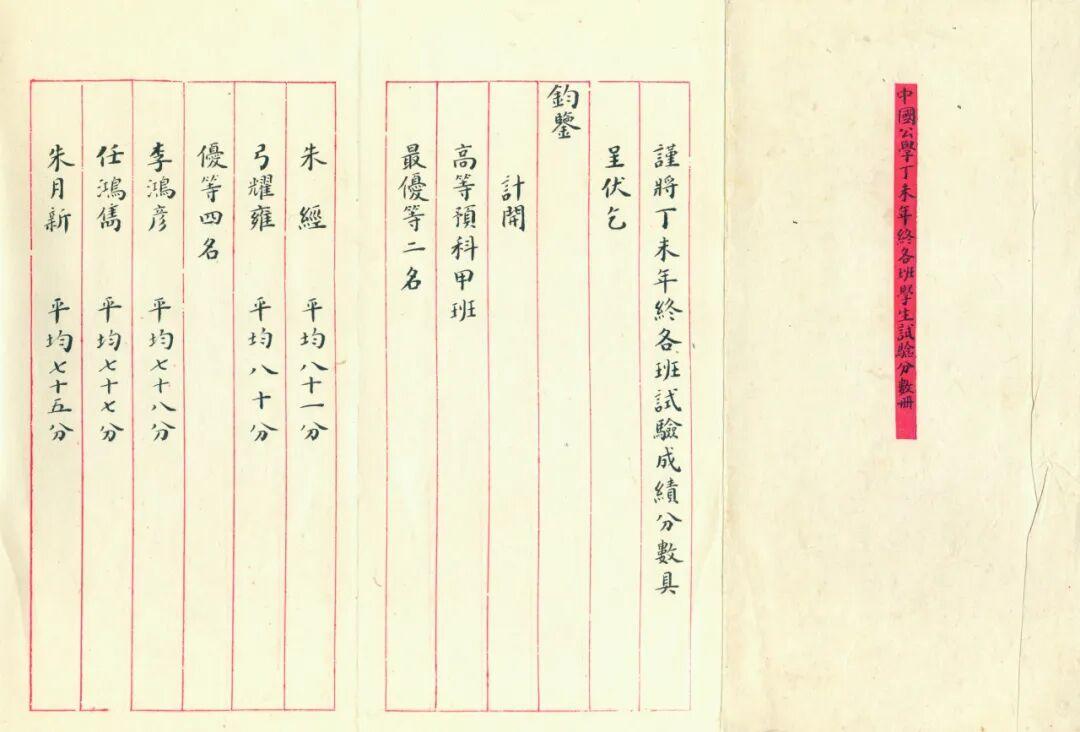 中國公學丁未年終各班學生試驗分數册
謹將丁未年終各班試驗成績分數具
呈伏乞
鈞鑒
計開
高等預科甲班
最優等二名
朱經 平均八十一分
弓耀雍 平均八十分
優等四名
李鴻彥 平均七十八分
任鴻雋 平均七十七分
朱月新 平均七十五分